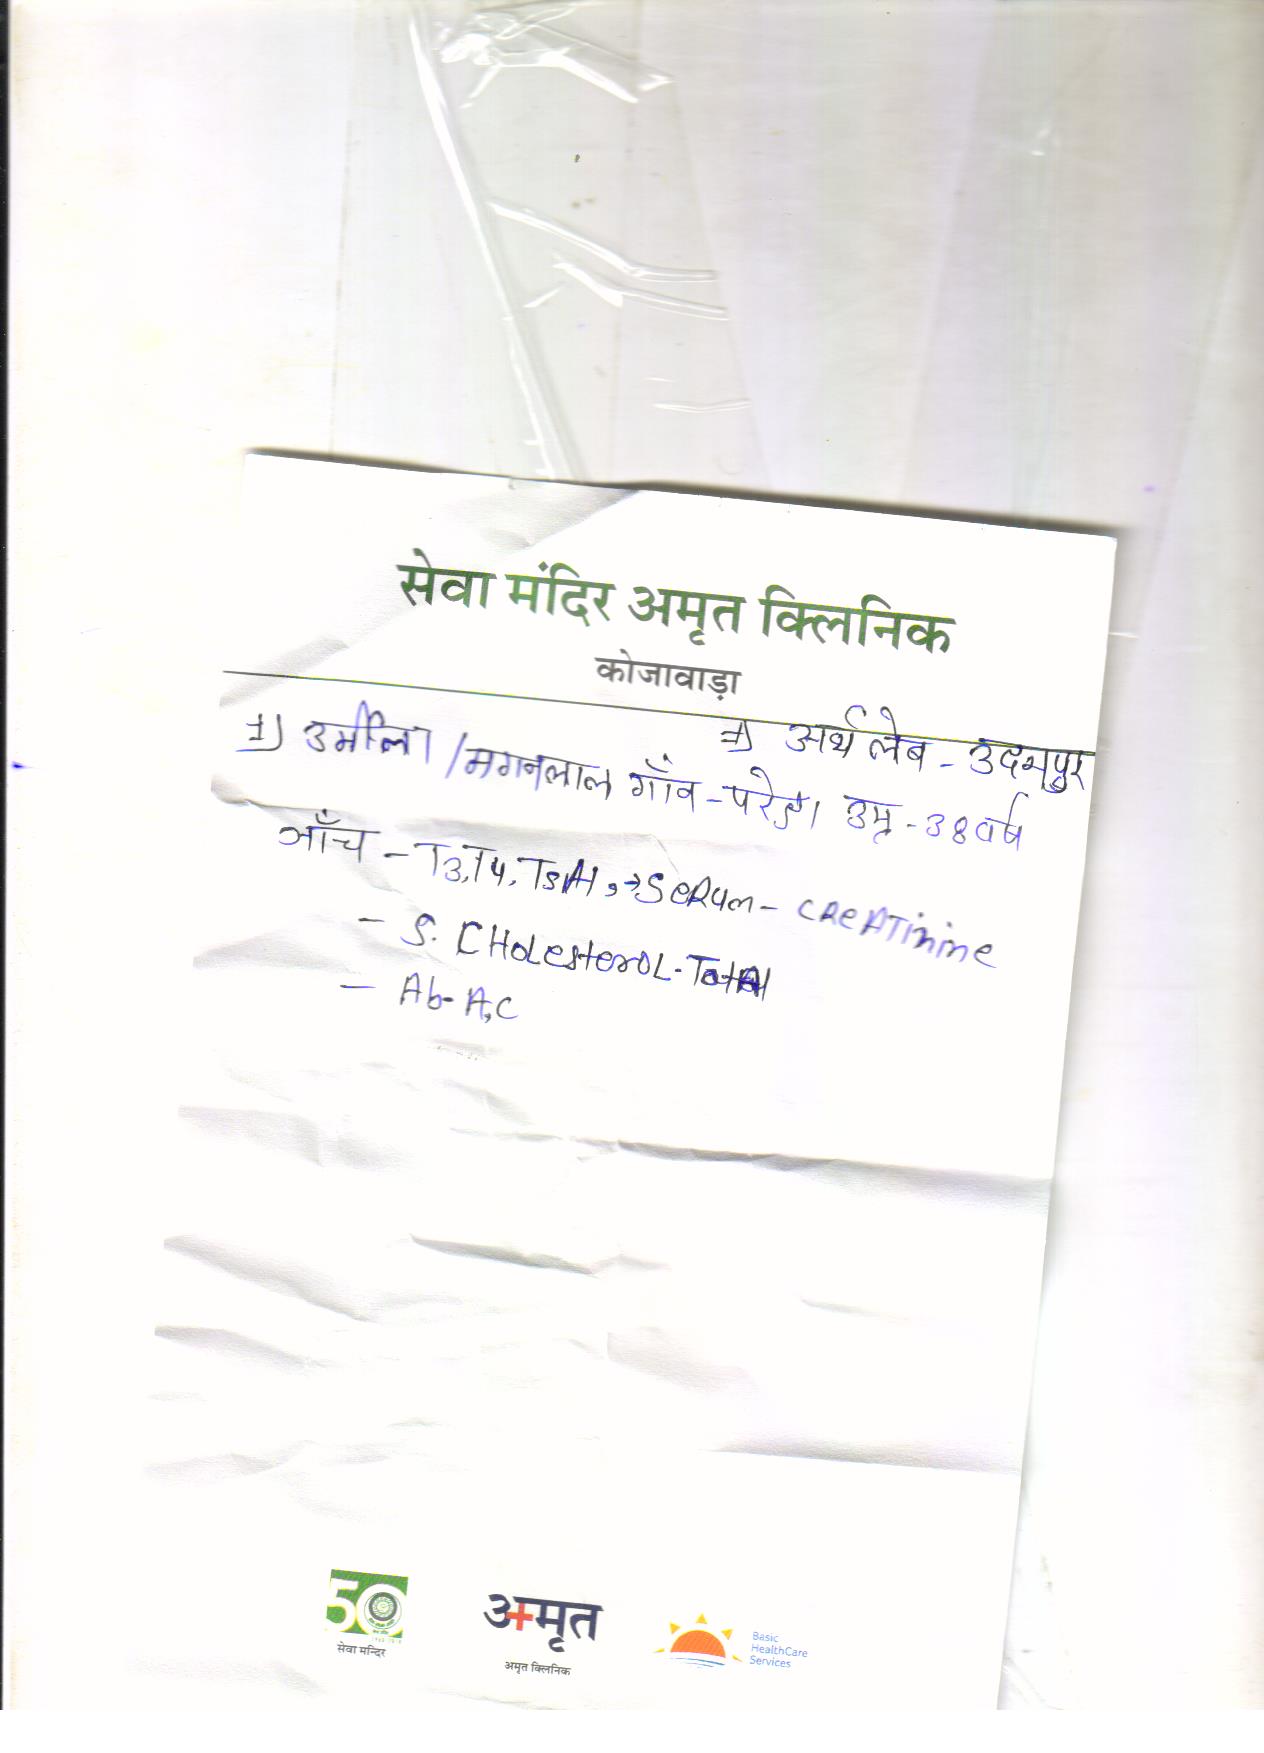 सेवा मंदिर अमृत क्लिनिक
कोजावाड़ा
1) अर्थ लेब - उदयपुर
1) उर्मीला /मगनलाल गाँव - परेडा उम्र - 38 वर्ष
जाँच - T3,T4,TSH, → SeRum - CREATinine
- S. CHoLesteroL-Total
- Ab-A,C
50
सेवा मन्दिर
अमृत
अमृत क्लिनिक
Basic
HealthCare
Services